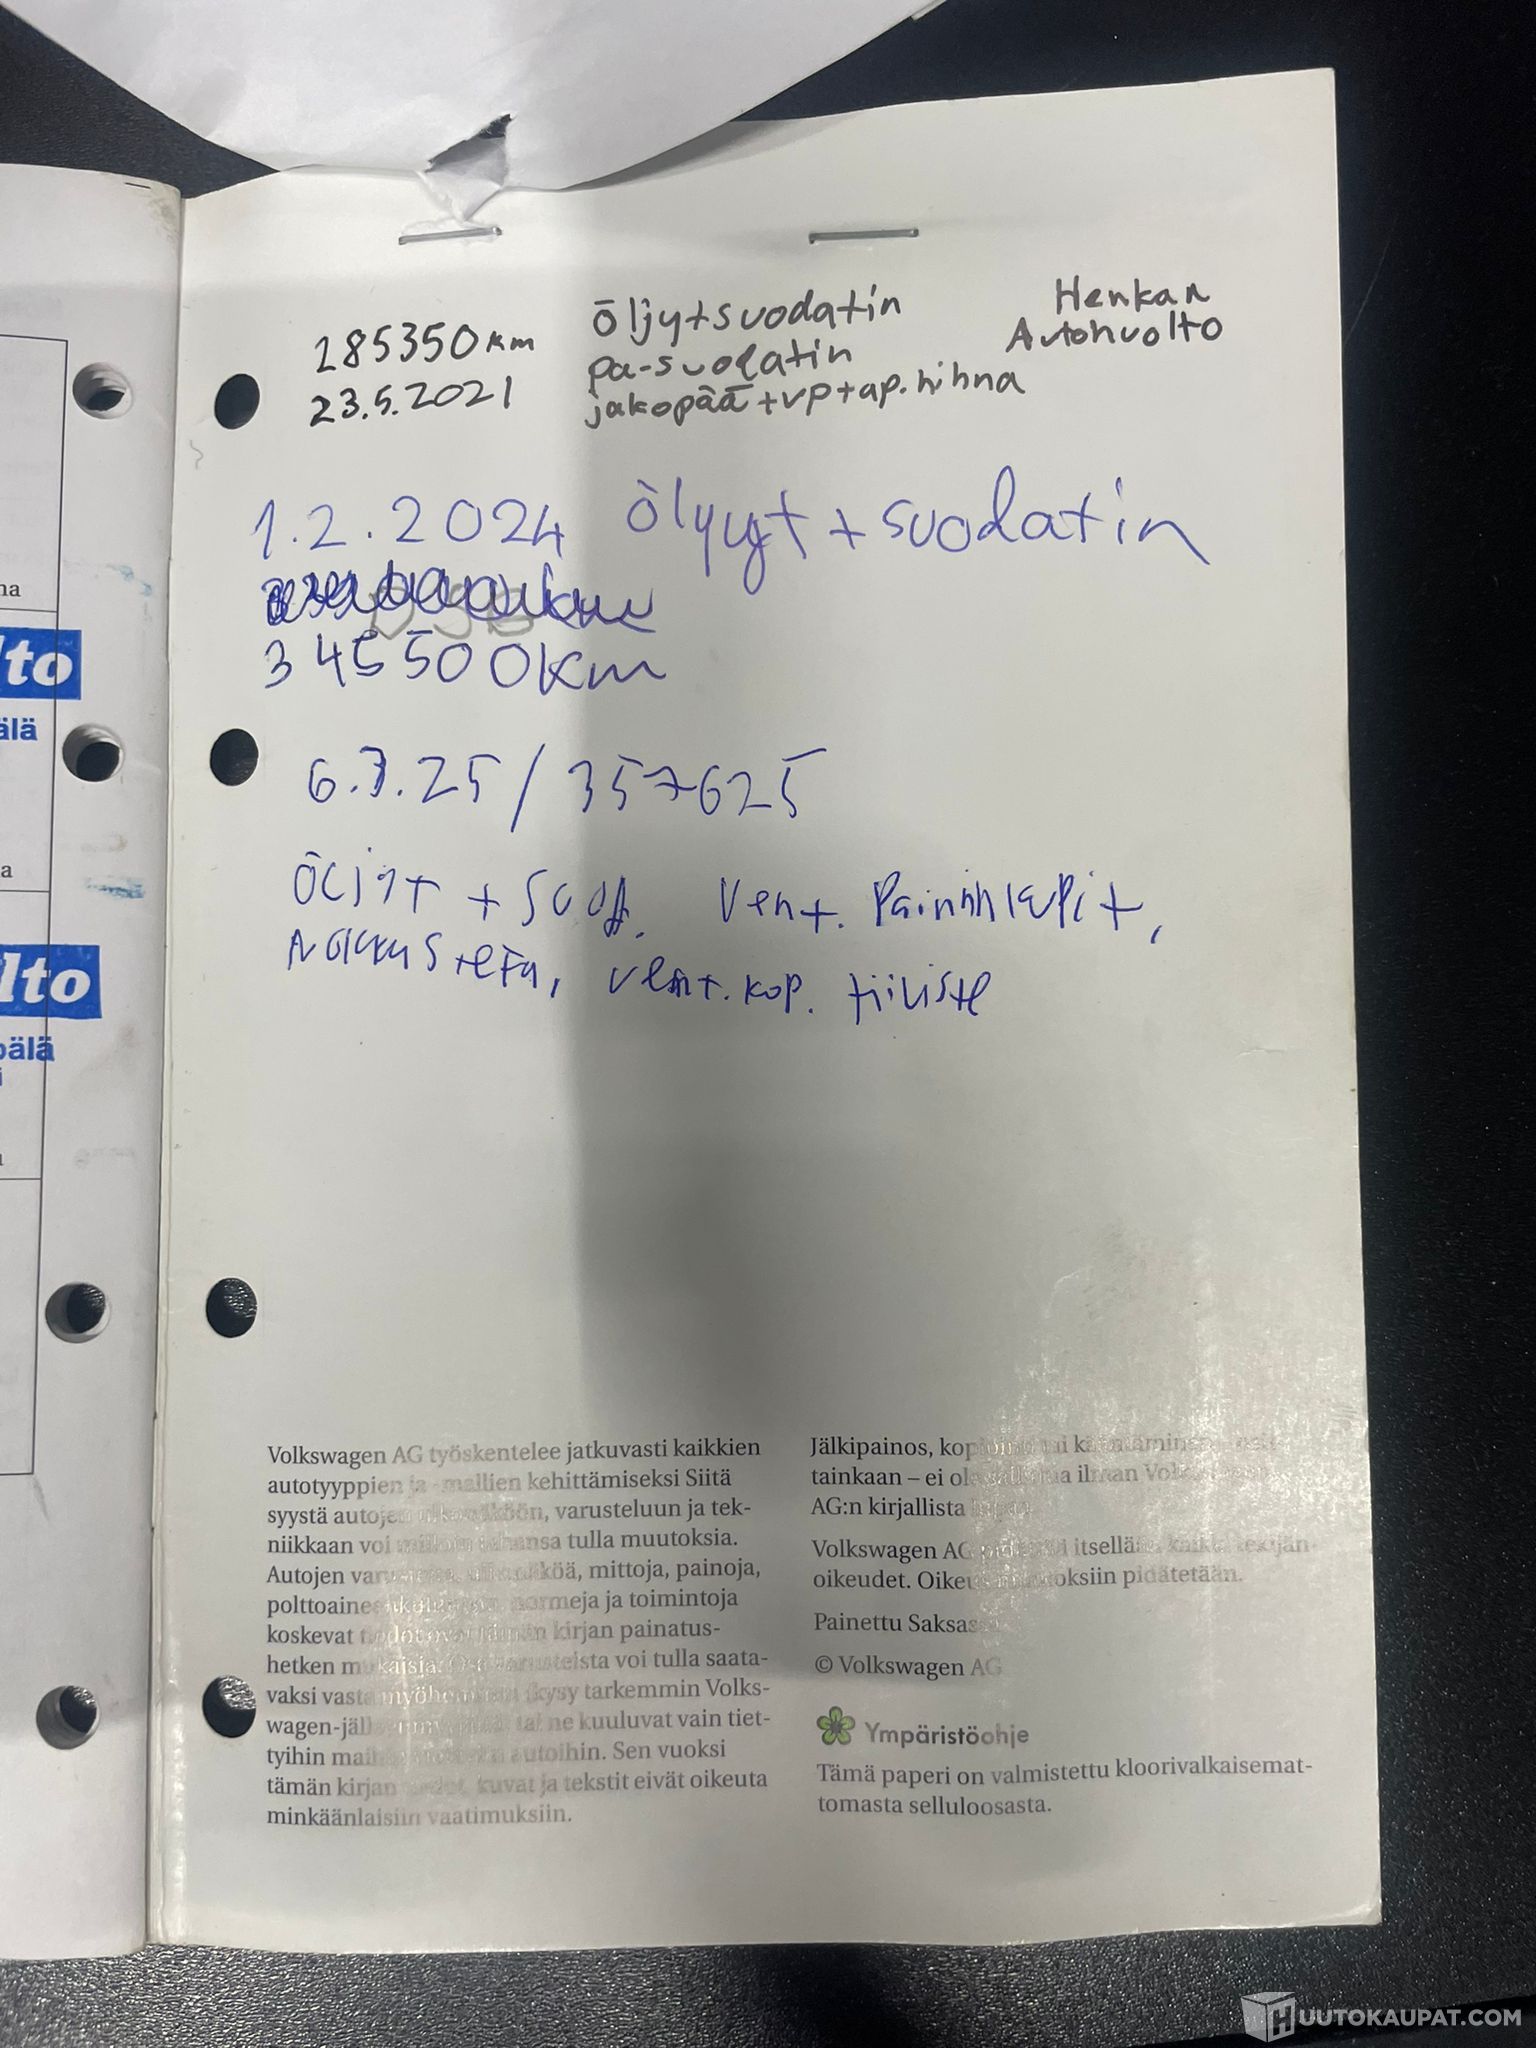 na
lto
älä
a
lto
pälä
i
285350km
23.5.2021
öljytsuodatin
pa-suodatin
jakopää+vp+ap.hihna
Henkan
Autohuolto
1.2.2024 ölyyt + suodatin
345500km
6.3.25 / 357625
öljyt + suod. Vent. Paininkupit,
Nokkustela, vent.kop. tiiviste
Volkswagen AG työskentelee jatkuvasti kaikkien
autotyyppien ja -mallien kehittämiseksi Siitä
syystä autojen ulkonäköön, varusteluun ja tek-
niikkaan voi milloin tahansa tulla muutoksia.
Autojen varustusta, ulkonäköä, mittoja, painoja,
polttoaineenkulutusta, normeja ja toimintoja
koskevat tiedot ovat tämän kirjan painatus-
hetken mukaisia. varusteista voi tulla saata-
vaksi vasta myöhemmin (kysy tarkemmin Volks-
wagen-jälleenmyyjältä) tai ne kuuluvat vain tiet-
tyihin maihin autoihin. Sen vuoksi
tämän kirjan tiedot, kuvat ja tekstit eivät oikeuta
minkäänlaisiin vaatimuksiin.
Jälkipainos, kopiointi tai kääntäminen – osit-
tainkaan – ei ole sallittua ilman Volkswagen
AG:n kirjallista lupaa.
Volkswagen AG pidättää itsellään kaikki tekijän-
oikeudet. Oikeus muutoksiin pidätetään.
Painettu Saksassa
© Volkswagen AG
Ympäristöohje
Tämä paperi on valmistettu kloorivalkaisemat-
tomasta selluloosasta.
HUUTOKAUPAT.COM